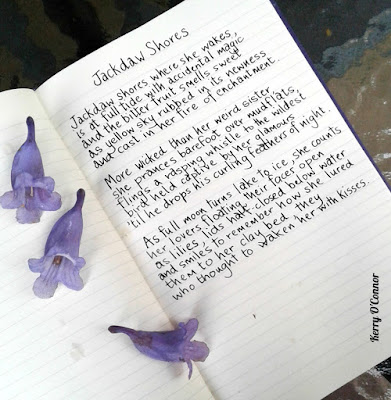 Jackdaw Shores
Jackdaw shores where she wakes,
is of full tide with accidental magic
and the bitter fruit smells sweet
as yellow sky rubbed in its newness
and cast in her fire of enchantment.
More wicked than her weird sister
she prances barefoot over mudflats,
flings a rasping whistle to the wildest
bird, held captive by her glamours
'til he drops his curling feathers of night.
As full moon turns lake to ice, she counts
her lovers floating their faces open
as lilies, lids half-closed below water
and smiles to remember how she lured
them to her clay bed they
who thought to waken her with kisses.
Kerry O'Connor